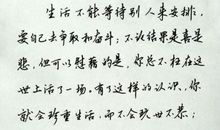 生活不能等待别人来安排，
要自己去争取和奋斗；不论结果是喜是
悲，但可以慰藉的是，你总不枉在这
世上活了一场，有了这样的认识，你
就会珍重生活，而不会玩世不恭；